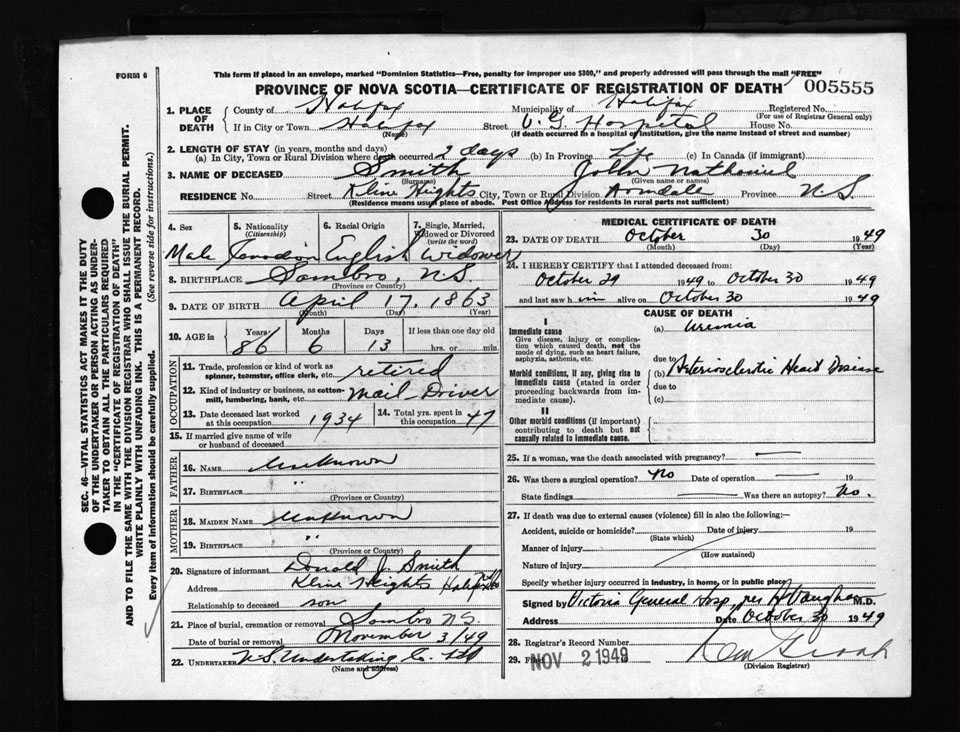 FORM 6
This form if placed in an envelope, marked "Dominion Statistics—Free, penalty for improper use $300," and properly addressed will pass through the mail "FREE"
PROVINCE OF NOVA SCOTIA—CERTIFICATE OF REGISTRATION OF DEATH 005555
1. PLACE OF DEATH County of Halifax Municipality of Halifax Registered No. (For use of Registrar General only)
If in City or Town Halifax (Name) Street V. G. Hospital House No.
(If death occurred in a hospital or institution, give the name instead of street and number)
2. LENGTH OF STAY (in years, months and days)
(a) In City, Town or Rural Division where death occurred 2 days (b) In Province Life (c) In Canada (if immigrant)
3. NAME OF DECEASED Smith (Surname) John Nathaniel (Given name or names)
RESIDENCE No. Street Kline Heights City, Town or Rural Division Armdale Province N S
(Residence means usual place of abode. Post Office Address for residents in rural parts not sufficient)
SEC. 46—VITAL STATISTICS ACT MAKES IT THE DUTY
OF THE UNDERTAKER OR PERSON ACTING AS UNDER-
TAKER TO OBTAIN ALL THE PARTICULARS REQUIRED
IN THE "CERTIFICATE OF REGISTRATION OF DEATH"
AND TO FILE THE SAME WITH THE DIVISION REGISTRAR WHO SHALL ISSUE THE BURIAL PERMIT.
WRITE PLAINLY WITH UNFADING INK. THIS IS A PERMANENT RECORD.
Every item of information should be carefully supplied. (See reverse side for instructions.)
4. Sex 5. Nationality (Citizenship) 6. Racial Origin 7. Single, Married, Widowed or Divorced (write the word)
Male Canadian English Widower
8. BIRTHPLACE Sambro, N.S.
(Province or Country)
9. DATE OF BIRTH April 17, 1863
(Month) (Day) (Year)
10. AGE in Years 86 Months 6 Days 13 If less than one day old hrs. or min.
OCCUPATION
11. Trade, profession or kind of work as spinner, teamster, office clerk, etc. retired
12. Kind of industry or business, as cotton-mill, lumbering, bank, etc. Mail Driver
13. Date deceased last worked at this occupation 1934 14. Total yrs. spent in this occupation 47
15. If married give name of wife or husband of deceased
FATHER
16. NAME Unknown
17. BIRTHPLACE "
(Province or Country)
MOTHER
18. MAIDEN NAME Unknown
19. BIRTHPLACE "
(Province or Country)
20. Signature of informant Donald J. Smith
Address Kline Heights Halifax
Relationship to deceased son
21. Place of burial, cremation or removal Sambro N.S.
Date of burial or removal November 3/49
22. UNDERTAKER N.S. Undertaking Co. Ltd
(Name and address)
MEDICAL CERTIFICATE OF DEATH
23. DATE OF DEATH October 30 1949
(Month) (Day) (Year)
24. I HEREBY CERTIFY that I attended deceased from:
October 29 1949 to October 30 1949
and last saw him alive on October 30 1949
CAUSE OF DEATH
I
Immediate cause (a) Uremia
Give disease, injury or complication which caused death, not the mode of dying, such as heart failure, asphyxia, asthenia, etc.
due to
Morbid conditions, if any, giving rise to immediate cause (stated in order proceeding backwards from immediate cause). (b) Arteriosclerotic Heart Disease
due to
(c)
II
Other morbid conditions (if important) contributing to death but not causally related to immediate cause.
25. If a woman, was the death associated with pregnancy? —
26. Was there a surgical operation? No Date of operation — 19
State findings — Was there an autopsy? No.
27. If death was due to external causes (violence) fill in also the following:—
Accident, suicide or homicide? Date of injury 19
(State which)
Manner of injury
(How sustained)
Nature of injury
Specify whether injury occurred in industry, in home, or in public place
Signed by Victoria General Hosp, per M.D.
Address Date October 30 1949
28. Registrar's Record Number
29. Filed NOV 2 1949
(Division Registrar)